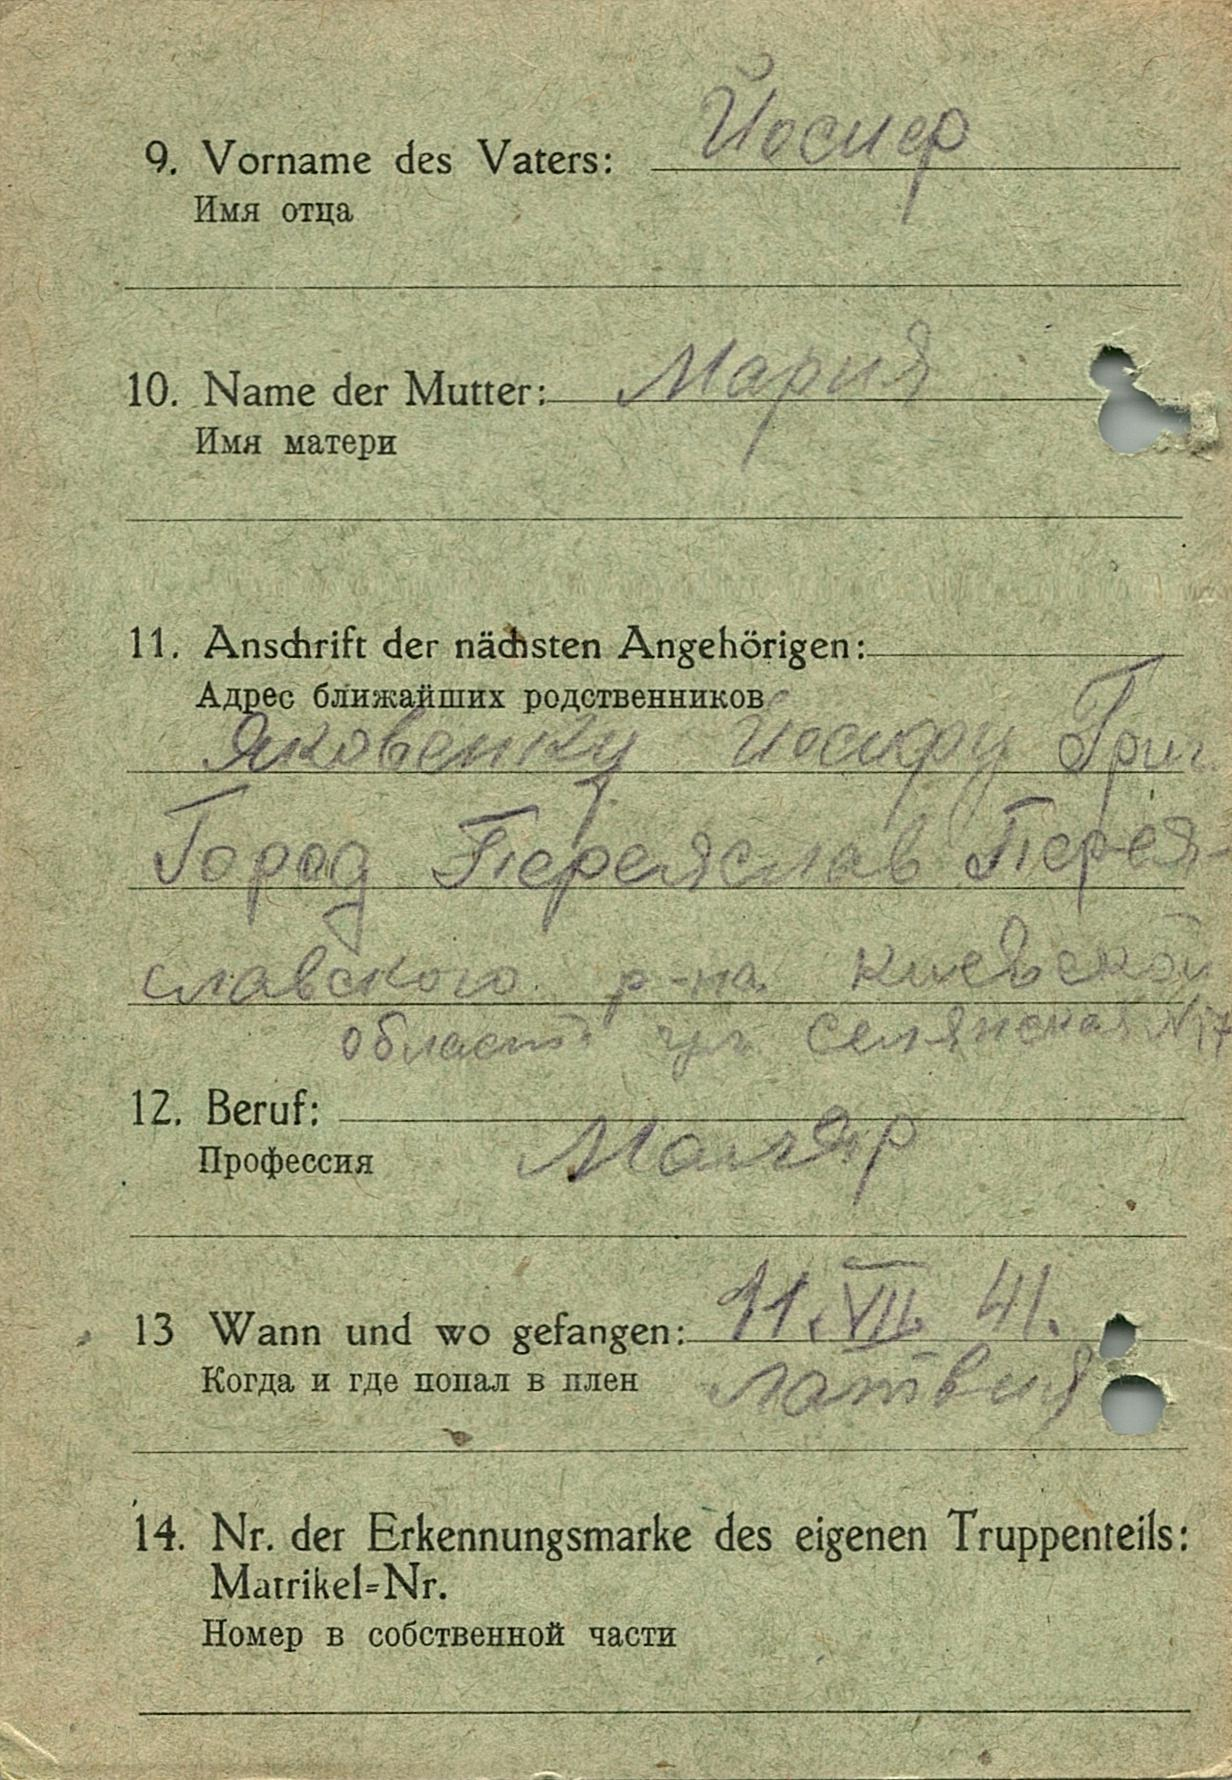 9. Vorname des Vaters: Йосиф
Имя отца
10. Name der Mutter: Мария
Имя матери
11. Anschrift der nächsten Angehörigen:
Адрес ближайших родственников
Яковенку Йосифу Григ.
Город Переяслав Перея-
славского р-на Киевской
области ул. Селянская N 17
12. Beruf:
Профессия Маляр
13 Wann und wo gefangen: 11.VII. 41.
Когда и где попал в плен Латвия
14. Nr. der Erkennungsmarke des eigenen Truppenteils:
Matrikel=Nr.
Номер в собственной части